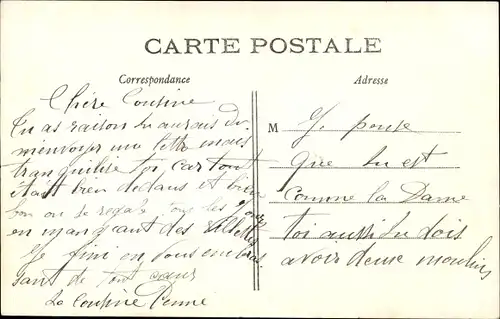 CARTE POSTALE
Correspondance
Chère Cousine
Tu as raison tu aurais du
m'envoyer une lettre mais
tranquilise toi car tout
était bien dedans et bien
bon on se régale tous les jours
en mangeant des
Je fini en vous embras
sant de tout cœur
La Cousine
Adresse
M Je pense
que tu est
comme la Dame
toi aussi tu dois
avoir deux moulins